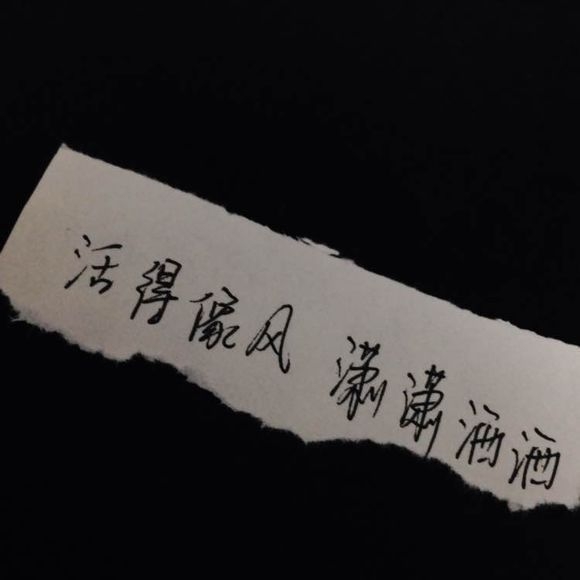 活得像风 潇潇洒洒